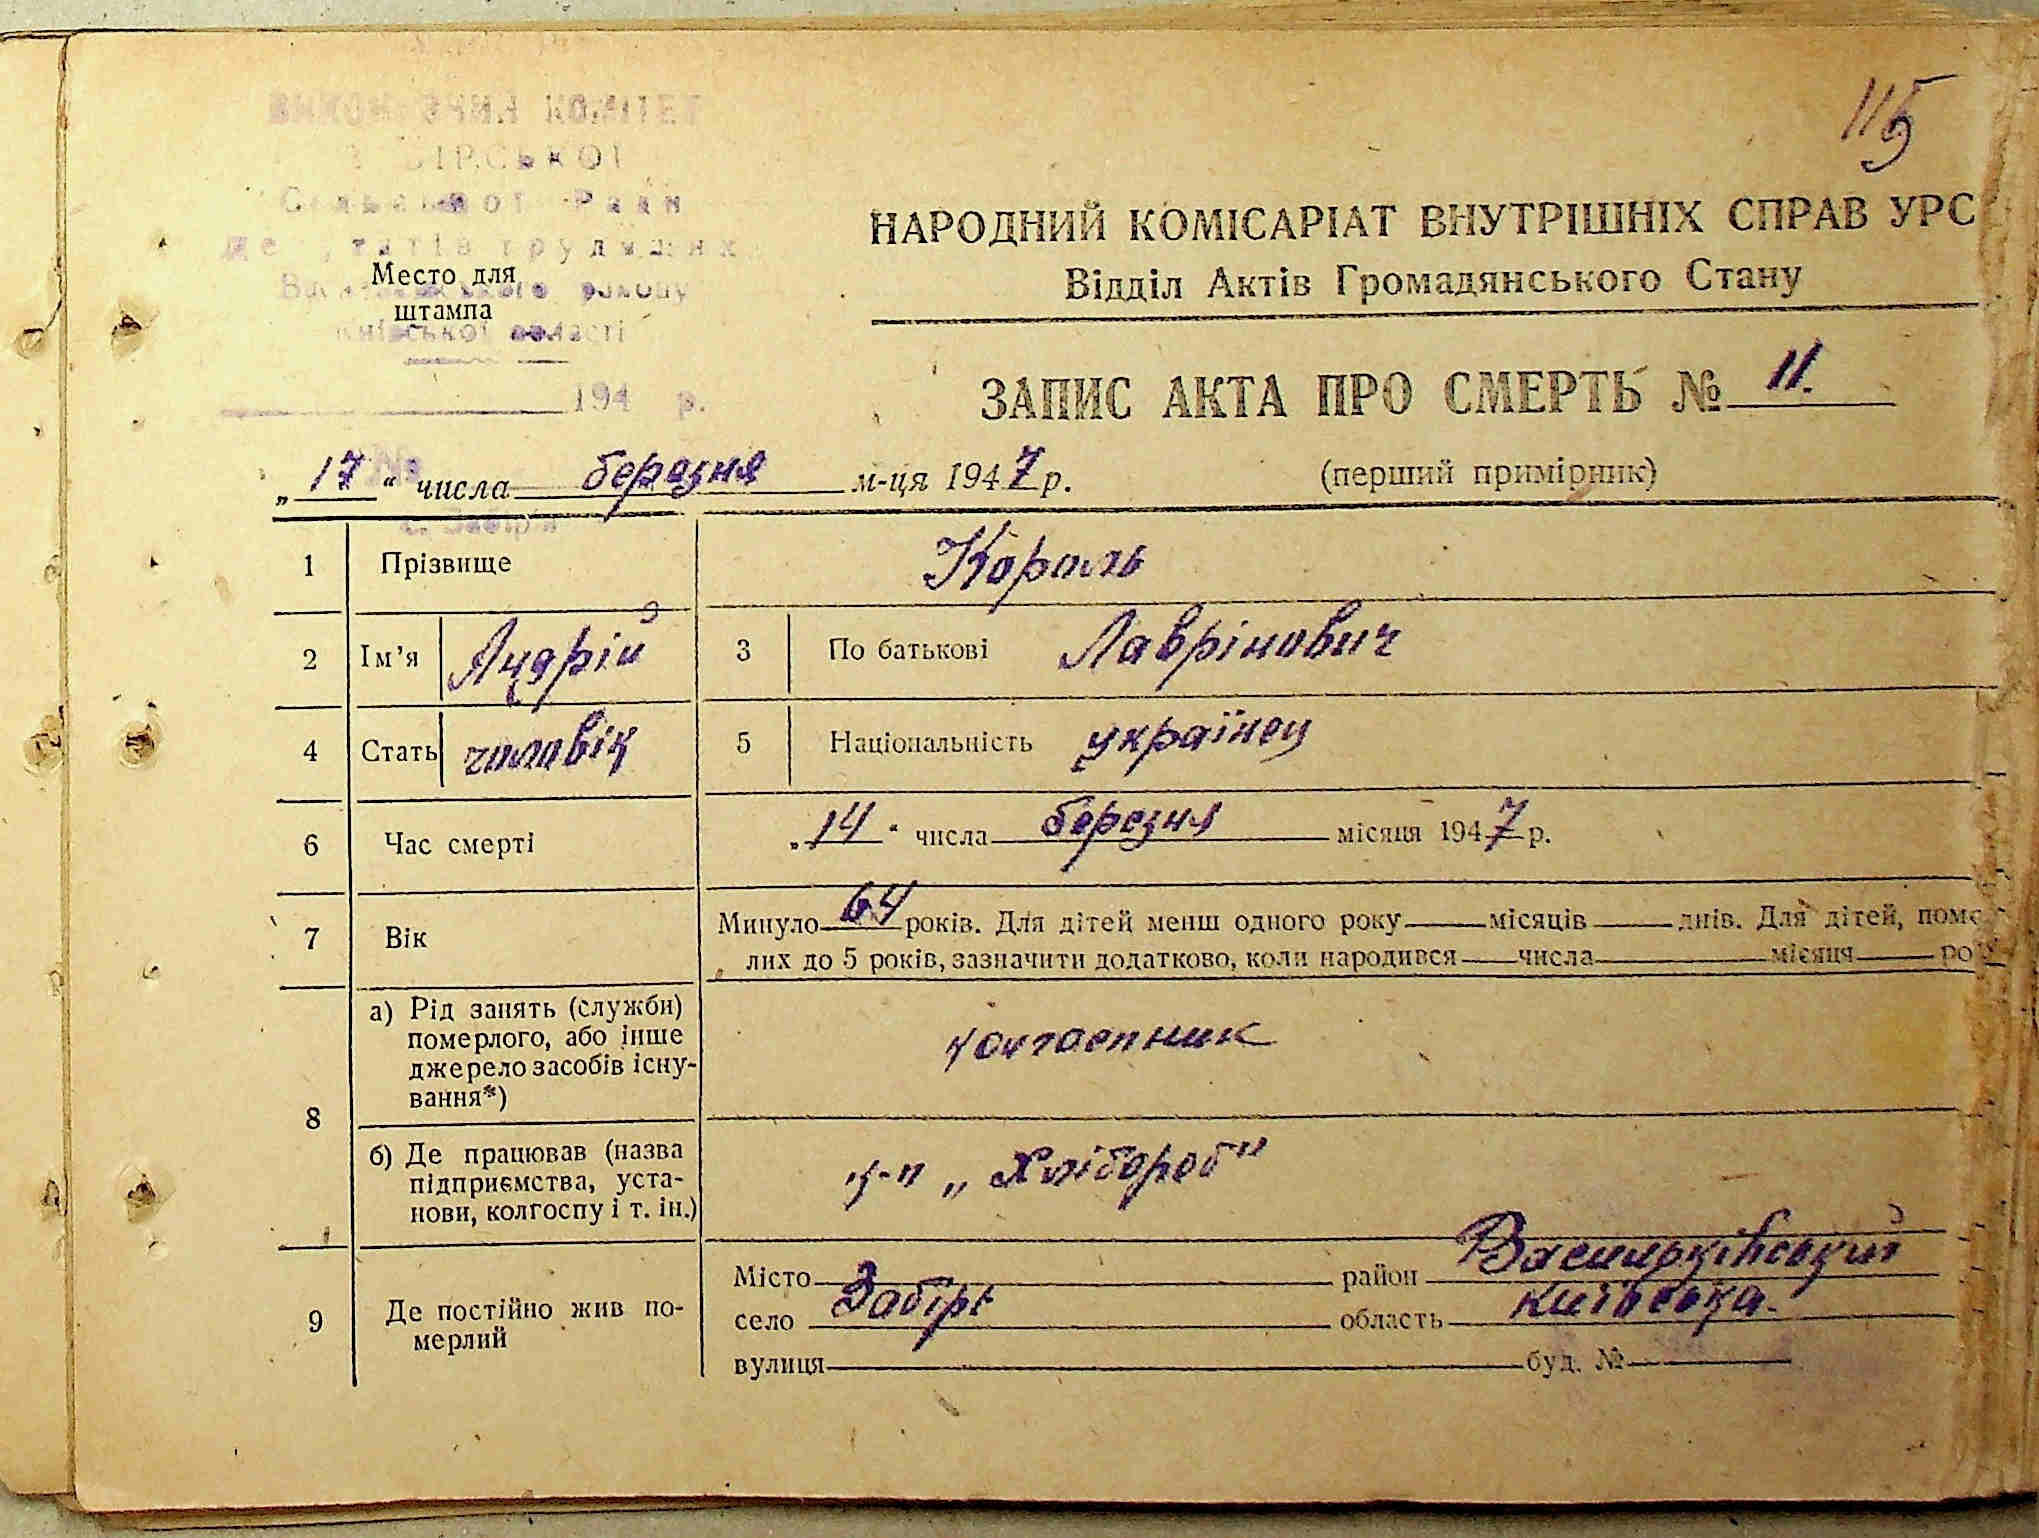 115
КОМІТЕТ
Сільської Ради
депутатів трудящих
Васильківського району
Київської області
194 р.
№
с. Забір'я
Место для
штампа
НАРОДНИЙ КОМІСАРІАТ ВНУТРІШНІХ СПРАВ УРС
Відділ Актів Громадянського Стану
ЗАПИС АКТА ПРО СМЕРТЬ № 11.
„17“ числа березня м-ця 1947 р. (перший примірник)
1 Прізвище Король
2 Ім’я Андрій 3 По батькові Лаврінович
4 Стать чоловік 5 Національність українец
6 Час смерті „14“ числа березня місяця 1947 р.
7 Вік Минуло 64 років. Для дітей менш одного року місяців днів. Для дітей, поме
лих до 5 років, зазначити додатково, коли народився числа місяця ро
8 а) Рід занять (служби)
померлого, або інше
джерело засобів існу-
вання*)
колгоспник
б) Де працював (назва
підприємства, уста-
нови, колгоспу і т. ін.)
к-п „Хлібороб"
9 Де постійно жив по-
мерлий
Місто район Васильківський
село Забірє область Київська.
вулиця буд. №